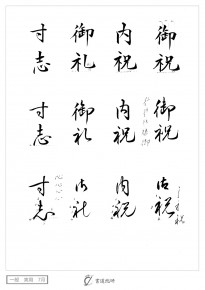 御祝
内祝
御礼
寸志
御祝
内祝
御礼
寸志
御祝
内祝
御礼
寸志